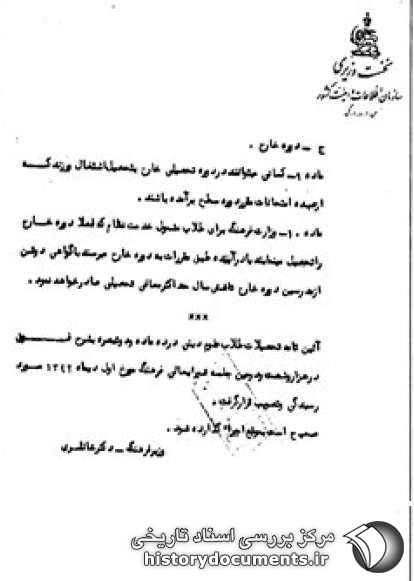 نخست وزیری
سازمان اطلاعات و امنیت کشور
ج ـ دوره خارج .
ماده ۹ـ کسانی میتوانند در دوره تحصیلی خارج بتحصیل اشتغال ورزند که
از عهده امتحانات مقرر دوره سطح برآمده باشند .
ماده ۱۰ـ وزارت فرهنگ برای طلاب مشمول خدمت نظام که فعلا دوره خارج
را تحصیل مینمایند یا در آینده طبق مقررات به دوره خارج میرسند با گواهی دو نفر
از مدرسین دوره خارج تا سال حداکثر معافی تحصیلی صادر خواهد نمود .
***
آئین نامه تحصیلات طلاب علوم دینی در ده ماده و دو تبصره بشرح فوق
در هزار و شصت و دومین جلسه شورایعالی فرهنگ مورخ اول دیماه ۱۳۴۲ مورد
رسیدگی و تصویب قرار گرفت .
صحیح است بموقع اجراء گذارده شود .
وزیر فرهنگ ـ دکتر خانلری
مرکز بررسی اسناد تاریخی
historydocuments.ir